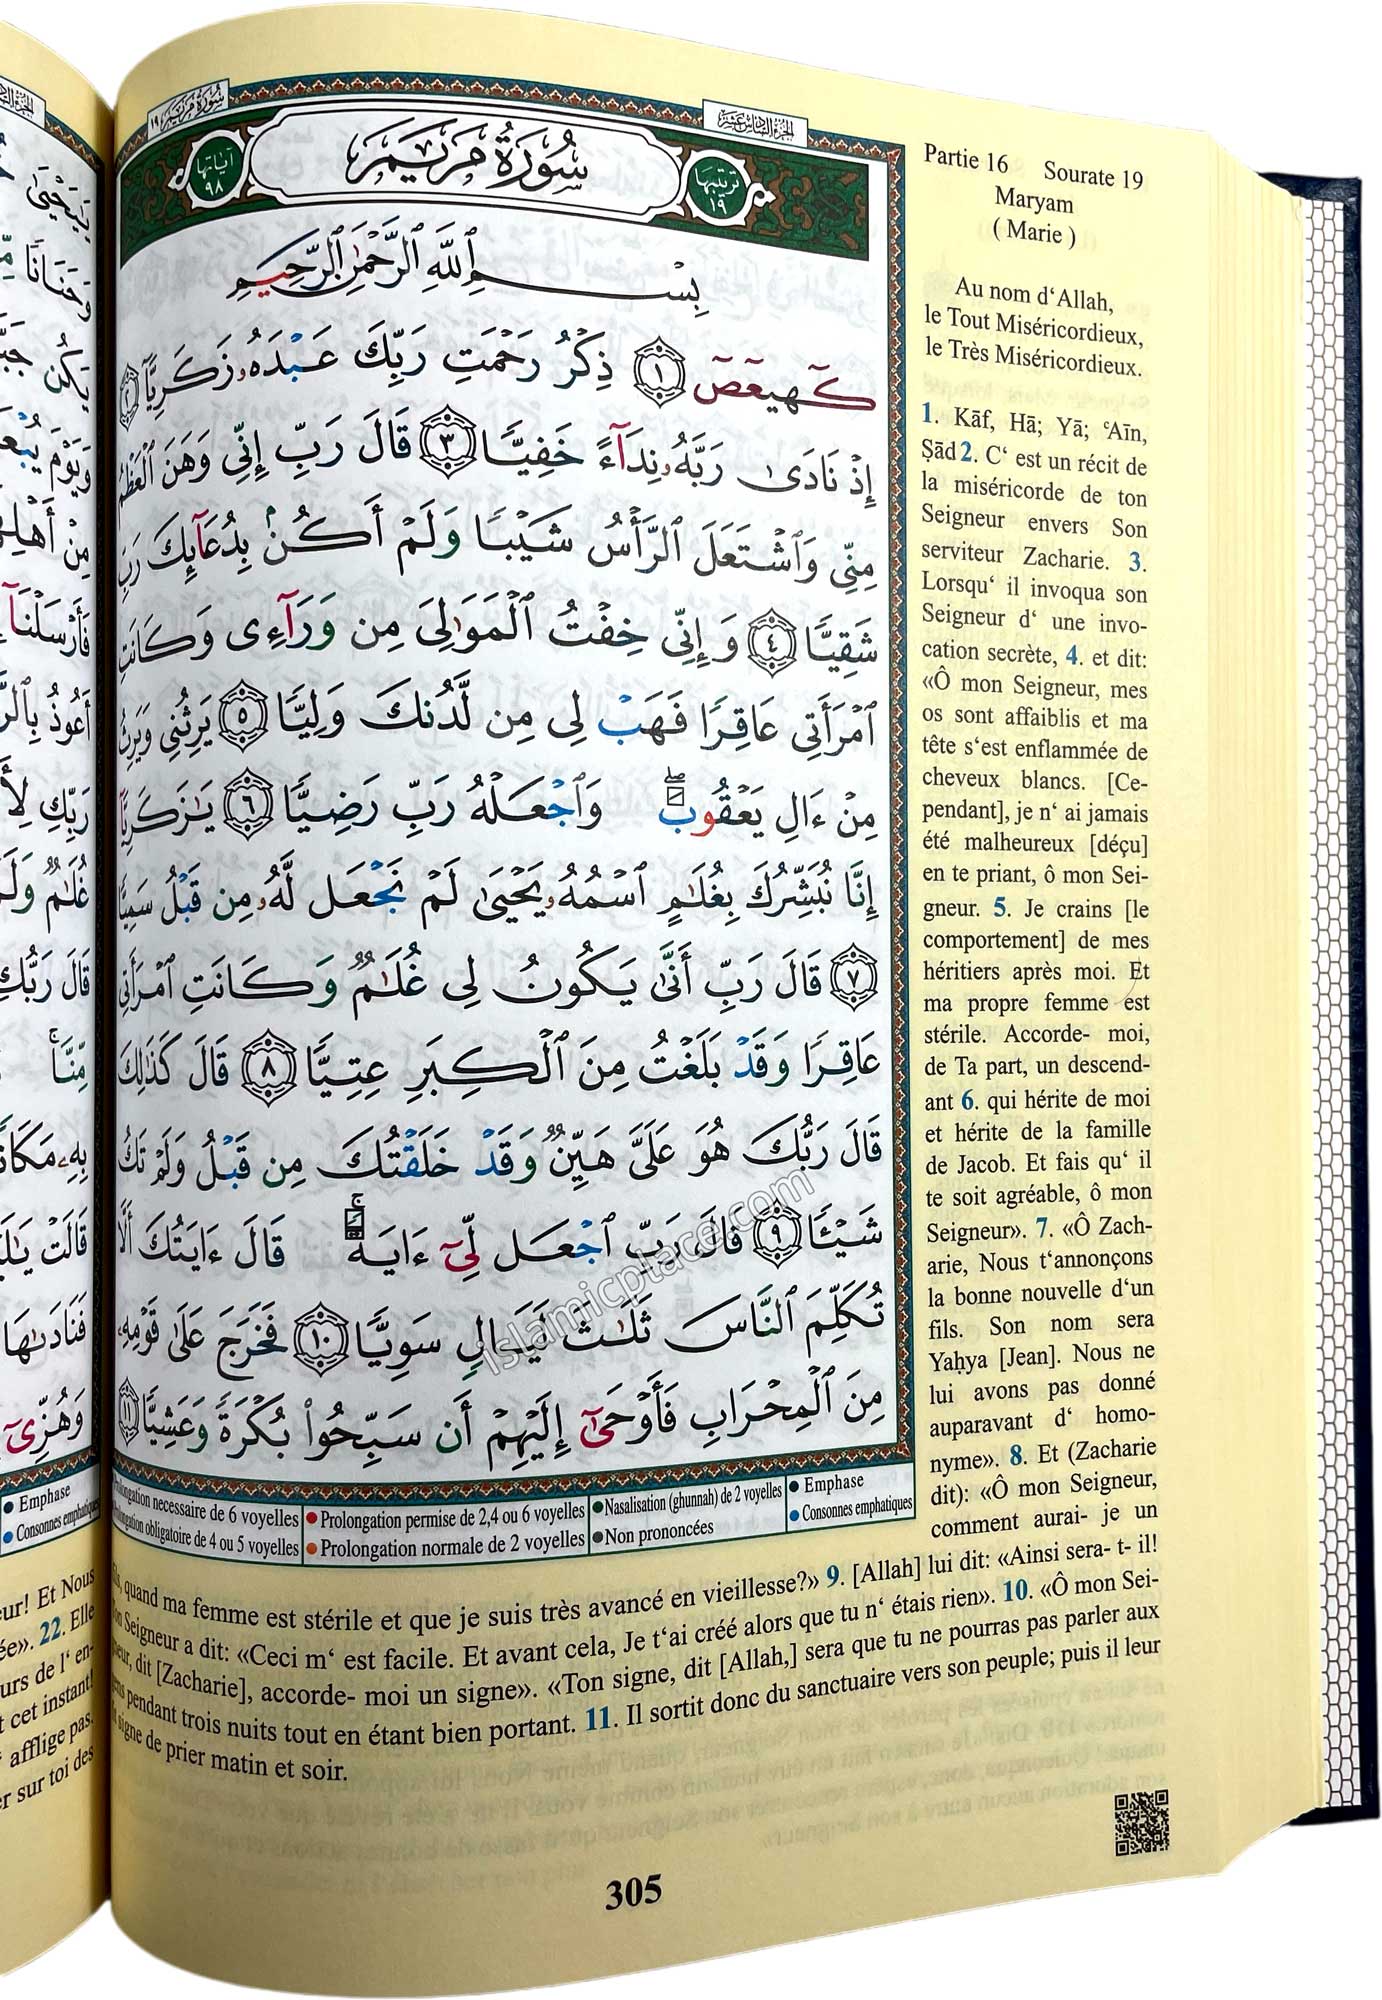 سُورَةُ مَرْيَمَ ١٩
الجزء السادس عشر
ترتيبها ١٩
سُورَةُ مَرْيَمَ
آياتها ٩٨
بِسْمِ ٱللَّهِ ٱلرَّحْمَٰنِ ٱلرَّحِيمِ
كٓهيعٓصٓ ١ ذِكْرُ رَحْمَتِ رَبِّكَ عَبْدَهُۥ زَكَرِيَّآ ٢
إِذْ نَادَىٰ رَبَّهُۥ نِدَآءً خَفِيًّا ٣ قَالَ رَبِّ إِنِّى وَهَنَ ٱلْعَظْمُ
مِنِّى وَٱشْتَعَلَ ٱلرَّأْسُ شَيْبًا وَلَمْ أَكُنۢ بِدُعَآئِكَ رَبِّ
شَقِيًّا ٤ وَإِنِّى خِفْتُ ٱلْمَوَٰلِىَ مِن وَرَآءِى وَكَانَتِ
ٱمْرَأَتِى عَاقِرًا فَهَبْ لِى مِن لَّدُنكَ وَلِيًّا ٥ يَرِثُنِى وَيَرِثُ
مِنْ ءَالِ يَعْقُوبَ ۖ وَٱجْعَلْهُ رَبِّ رَضِيًّا ٦ يَٰزَكَرِيَّآ
إِنَّا نُبَشِّرُكَ بِغُلَٰمٍ ٱسْمُهُۥ يَحْيَىٰ لَمْ نَجْعَل لَّهُۥ مِن قَبْلُ سَمِيًّا
٧ قَالَ رَبِّ أَنَّىٰ يَكُونُ لِى غُلَٰمٌ وَكَانَتِ ٱمْرَأَتِى
عَاقِرًا وَقَدْ بَلَغْتُ مِنَ ٱلْكِبَرِ عِتِيًّا ٨ قَالَ كَذَٰلِكَ
قَالَ رَبُّكَ هُوَ عَلَىَّ هَيِّنٌ وَقَدْ خَلَقْتُكَ مِن قَبْلُ وَلَمْ تَكُ
شَيْـًٔا ٩ قَالَ رَبِّ ٱجْعَل لِّىٓ ءَايَةً ۚ قَالَ ءَايَتُكَ أَلَّا
تُكَلِّمَ ٱلنَّاسَ ثَلَٰثَ لَيَالٍ سَوِيًّا ١٠ فَخَرَجَ عَلَىٰ قَوْمِهِۦ
مِنَ ٱلْمِحْرَابِ فَأَوْحَىٰٓ إِلَيْهِمْ أَن سَبِّحُوا۟ بُكْرَةً وَعَشِيًّا ١١
islamicplace.com
necessaire de 6 voyelles
obligatoire de 4 ou 5 voyelles
Prolongation permise de 2,4 ou 6 voyelles
Prolongation normale de 2 voyelles
Nasalisation (ghunnah) de 2 voyelles
Non prononcées
Emphase
Consonnes emphatiques
Partie 16 Sourate 19
Maryam
( Marie )
Au nom d‘Allah,
le Tout Miséricordieux,
le Très Miséricordieux.
1. Kāf, Hā; Yā; ‘Aīn,
Ṣād 2. C‘ est un récit de
la miséricorde de ton
Seigneur envers Son
serviteur Zacharie. 3.
Lorsqu‘ il invoqua son
Seigneur d‘ une invo-
cation secrète, 4. et dit:
«Ô mon Seigneur, mes
os sont affaiblis et ma
tête s‘est enflammée de
cheveux blancs. [Ce-
pendant], je n‘ ai jamais
été malheureux [déçu]
en te priant, ô mon Sei-
gneur. 5. Je crains [le
comportement] de mes
héritiers après moi. Et
ma propre femme est
stérile. Accorde- moi,
de Ta part, un descend-
ant 6. qui hérite de moi
et hérite de la famille
de Jacob. Et fais qu‘ il
te soit agréable, ô mon
Seigneur». 7. «Ô Zach-
arie, Nous t‘annonçons
la bonne nouvelle d‘un
fils. Son nom sera
Yaḥya [Jean]. Nous ne
lui avons pas donné
auparavant d‘ homo-
nyme». 8. Et (Zacharie
dit): «Ô mon Seigneur,
comment aurai- je un
fils, quand ma femme est stérile et que je suis très avancé en vieillesse?» 9. [Allah] lui dit: «Ainsi sera- t- il!
Ton Seigneur a dit: «Ceci m‘ est facile. Et avant cela, Je t‘ai créé alors que tu n‘ étais rien». 10. «Ô mon Sei-
gneur, dit [Zacharie], accorde- moi un signe». «Ton signe, dit [Allah,] sera que tu ne pourras pas parler aux
gens pendant trois nuits tout en étant bien portant. 11. Il sortit donc du sanctuaire vers son peuple; puis il leur
signe de prier matin et soir.
305
Emphase
Consonnes emphatiques
22. Elle
cet instant!
afflige pas.
sur toi des